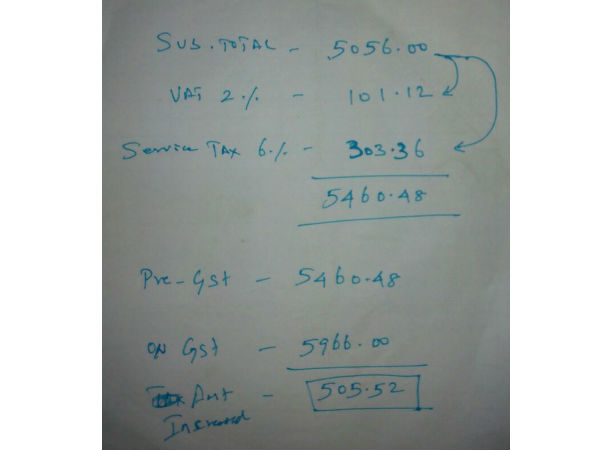 SUB.TOTAL - 5056.00
VAT 2.%. - 101.12
Service TAX 6.%. - 303.36
5460.48
Pre-Gst - 5460.48
ON Gst - 5966.00
Amt - 505.52
Increased